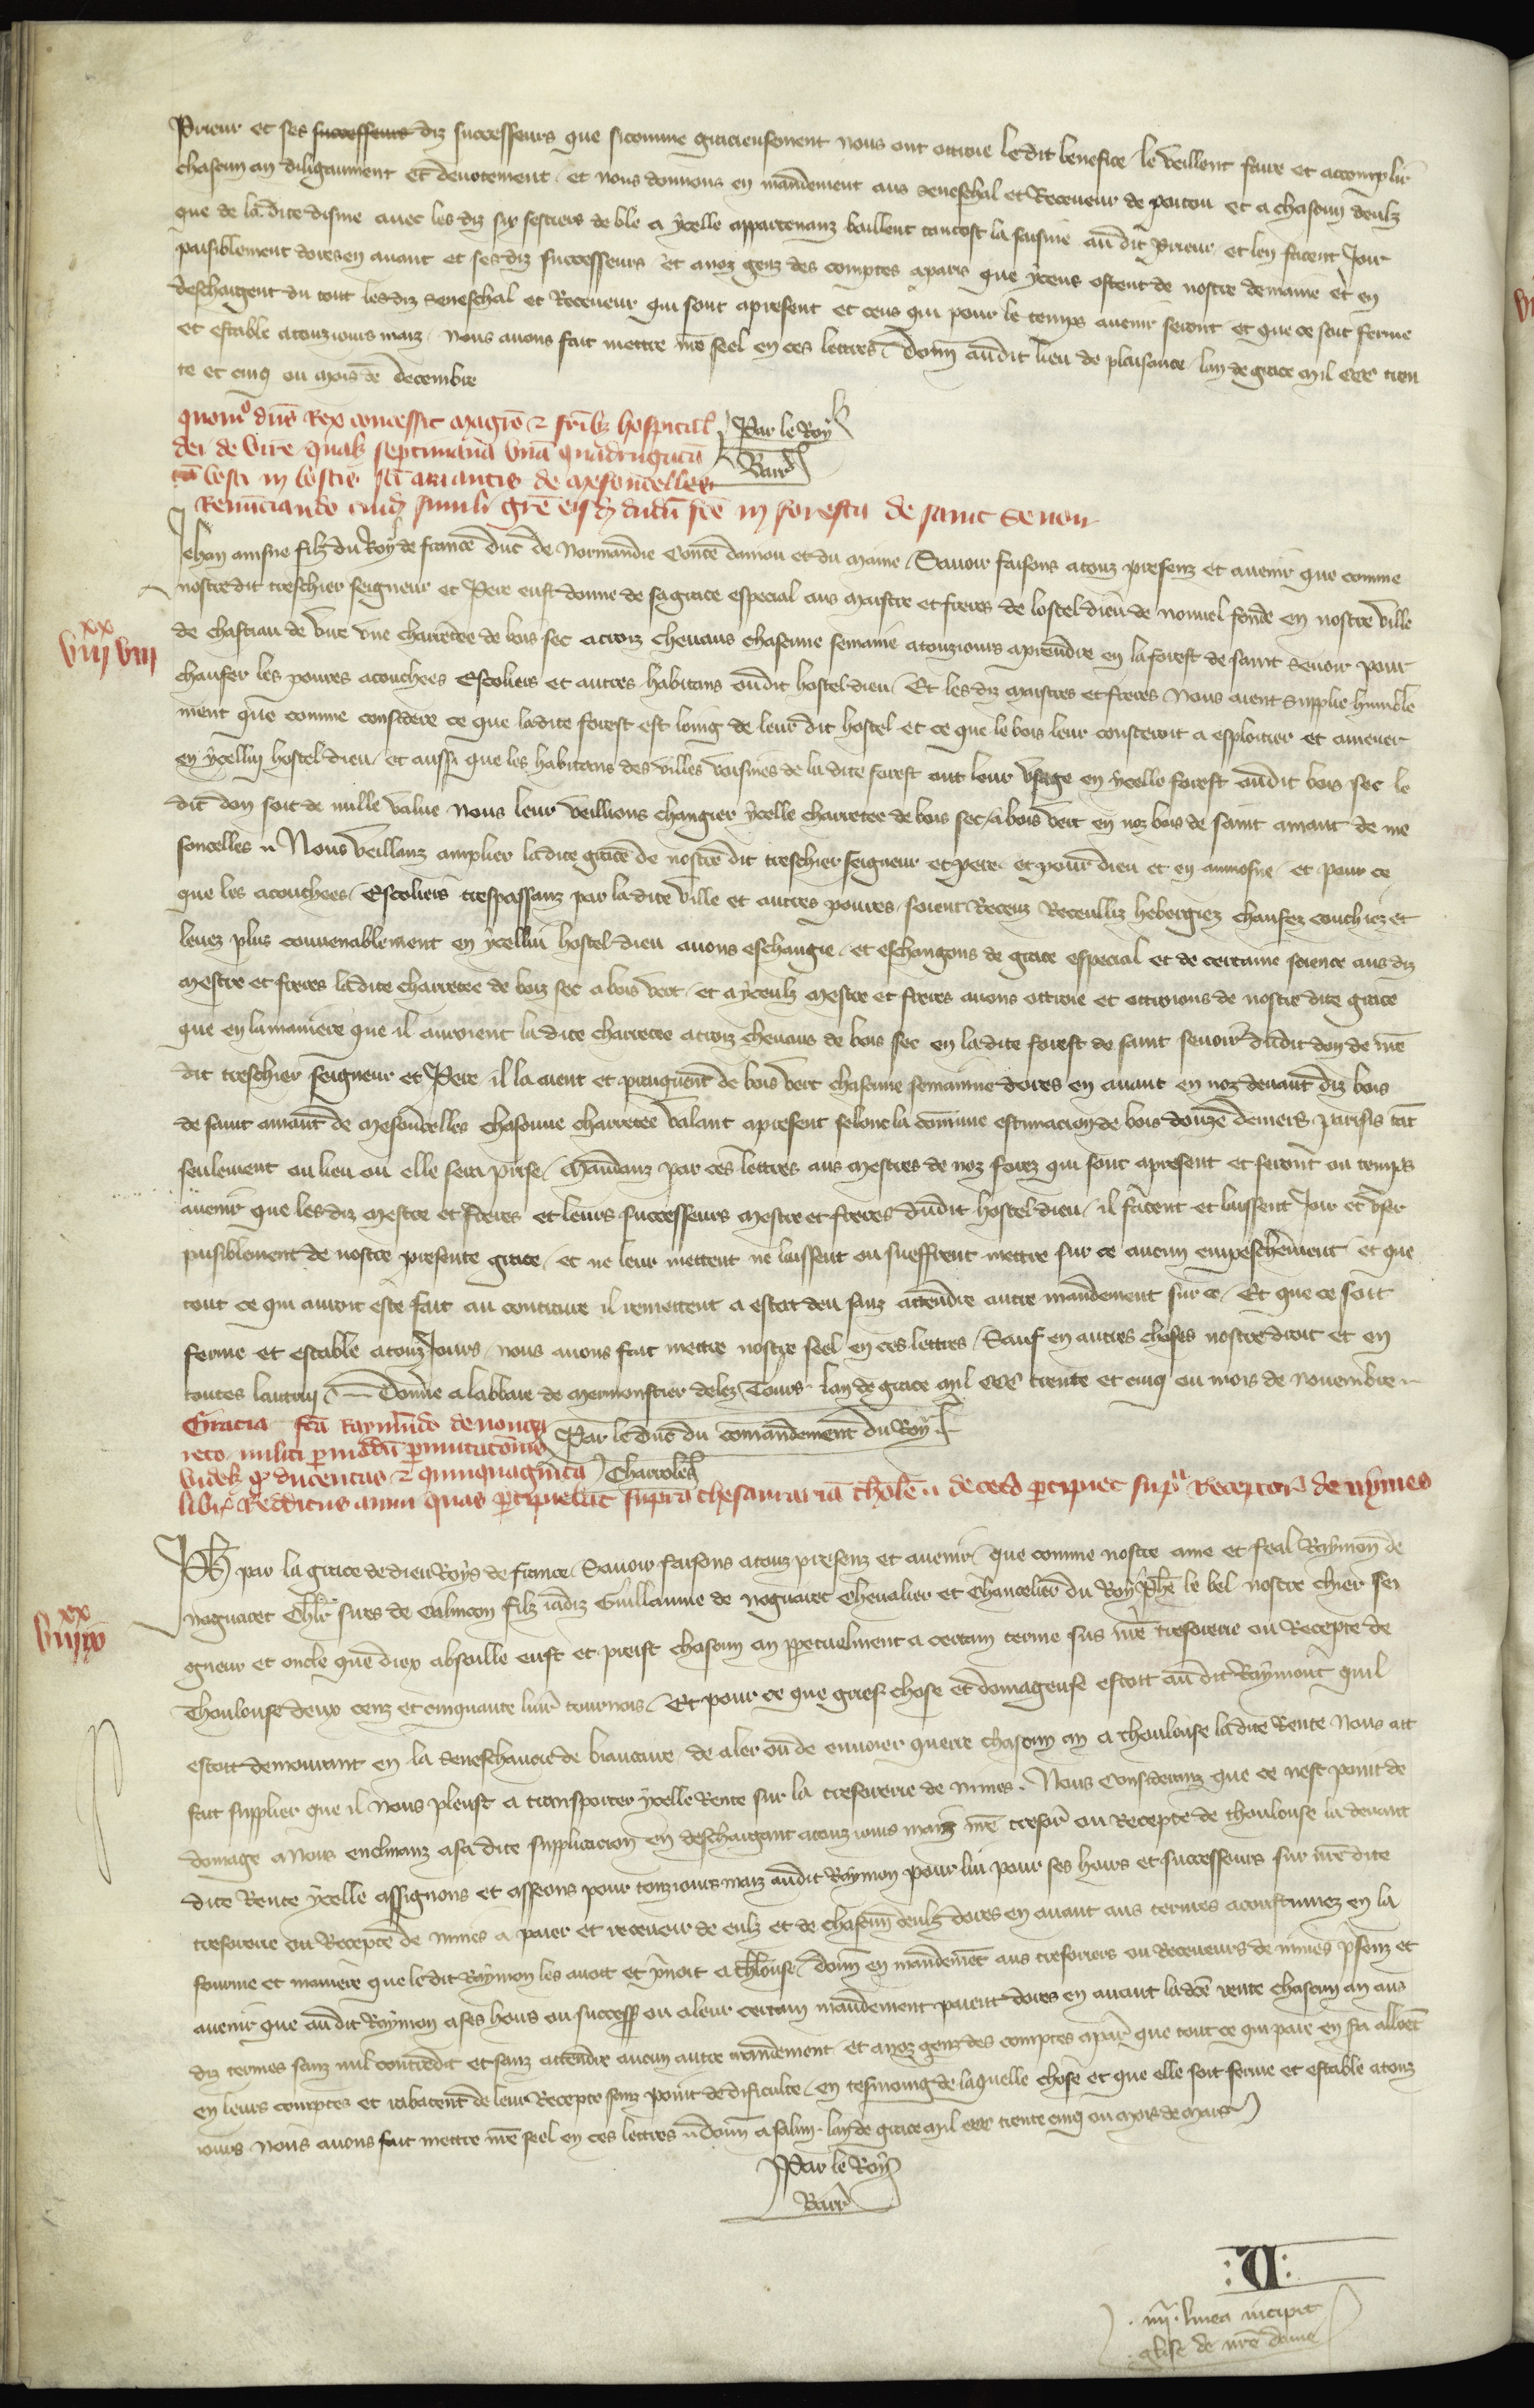 Prieur et ses successeurs diz successeurs que sicomme gracieusement nous ont ottroie ledit benefice le veillent faire et acomplir
chascun an diligaument et devotement et nous donnons en mandement aus seneschal et Receveur de poitou et a chascun deulz
que de la dite disme avec les diz six sestiers de ble a ycelle appartenanz baillent tantost la saisine au dit Prieur et len facent Joir
paisiblement dores en avant et ses diz successeurs et a noz genz des comptes a paris que yceus ostent de nostre demaine et en
deschargent du tout lesdiz seneschal et Receveur qui sont apresent et ceus qui pour le temps avenir seront et que ce soit ferme
et estable atouziours maiz nous avons fait mettre nre seel en ces lettres Donn audit lieu de plaisance lan de grace mil ccc tren
te et cinq ou mois de decembre
quom⁰ dns Rex concessit magro et frib; hospital
dei de vire qualib; septimana una quadrugata
bosci in sci amantis de mesoncelles
Renunciando cuid simili gre eisd; dudu fce in foresta de saint Sevoir
Par le Roy
Barr
Jehan ainsne filz du Roy de france duc de Normandie Conte danjou et du maine Savoir faisons atouz presenz et avenir que comme
nostredit treschier seigneur et Pere eust donne de sa grace especial aus maistre et freres de lostel dieu de nouvel fonde en nostre ville
de chastiau de vire une charretee de bois sec atroiz chevaus chascune semaine atouziours aprendre en la forest de saint sevoir pour
viii viii
xx
chaufer les povres acouchees Escoliers et autres habitans oudit hostel dieu Et les diz maistres et freres nous aient supplie humble
ment que comme considere ce que ladite forest est loing de leur dit hostel et ce que le bois leur consteroit a esploitier et amener
en ycellui hostel dieu et aussi que les habitans des villes voisines de la dite forest ont leur usage en ycelle forest oudit bois sec le
dit don soit de nulle value nous leur veillions changier ycelle charretee de bois sec a bois vert en noz bois de saint amant de me
soncelles Nous veillanz amplier ladite grace de nostre dit treschier seigneur et pere et pour dieu et en aumosne et pour ce
que les acouchees Escoliers trespassanz par ladite ville et autres povres soient Receuz Receulliz hebergiez chaufez couchiez et
levez plus convenablement en ycellui hostel dieu avons eschangie et eschangons de grace especial et de certaine science aus diz
mestre et freres ladite charretee de boiz sec a bois vert et a yceulz mestre et freres avons ottroie et ottroions de nostre dite grace
que en la maniere que il auroient la dite charretee atroiz chevaus de bois sec en ladite forest de saint sevoir dudit don de nre
dit treschier seigneur et Pere il la aient et preignent de bois vert chascune semainne dores en avant en noz devant diz bois
de saint amant de mesoncelles chascune charretee valant apresent selonc la comune estimacion de bois douze deniers parisis tat
seulement ou lieu ou elle sera prise Mandanz par ces lettres aus mestres de noz forez qui sont apresent et seront ou temps
avenir que les diz mestre et freres et leurs successeurs mestre et freres dudit hostel dieu il facent et laissent Joir et user
paisiblement de nostre presente grace et ne leur mettent ne laissent ou sueffrent mettre sur ce aucun empeschement et que
tout ce qui auroit este fait au contraire il remettent a estat deu sanz attendre autre mandement sur ce Et que ce soit
ferme et estable atouz Jours nous avons fait mettre nostre seel en ces lettres Sauf en autres choses nostre droit et en
toutes lautrui Donne a labbaie de mermonstier delez Tours lan de grace mil ccc trente et cinq ou mois de novembre
Gracia fca Raymundo de nonga
reto militi p modu pmutacionis
videl; q ducentas et quinquaginta
libr Redditus annui quas pcipiebat supra thesaurariam tholen de ceto pcipiet sup Receptor de nymes
Par le duc du comandement du Roy
Charroles
Ph par la grace de dieu Roys de france Savoir faisons atouz presenz et avenir que comme nostre ame et feal Raymon de
nogaret Chlr sires de Calvicon filz iadiz Guillaume de nogaret Chevalier et Chancelier du Roy phe le bel nostre chier sei
xx
viii ix
gneur et oncle que diex absoille eust et preist chascun an ppetuelment a certain terme sus nre tresorerie ou Recepte de
Thoulouse deux cenz et cinquante livr tournois Et pour ce que grief chose et domageuse estoit au dit Raymont quil
estoit demourant en la seneschaucie de biaucaire de aler ou de envoier querre chascun an a thoulouse ladite Rente nous ait
fait supplier que il nous pleust a transporter ycelle Rente sur la tresorerie de nimes Nous Consideranz que ce nest point de
domage a nous enclinanz a sa dite supplicacion en deschargant atouz iours maiz nre tresor ou Recepte de thoulouse la devant
dite Rente ycelle assignons et asseons pour touziours maiz audit Raymon pour lui pour ses hoirs et successeurs sur nre dite
tresorerie ou Recepte de nimes a paier et recevoir de eulz et de chascun deulz dores en avant aus termes acoustumez en la
fourme et maniere que ledit Raymon les avoit et prenoit a tholouse donn en mandement aus tresoriers ou Receveurs de nimes psenz et
avenir que au dit Raymon a ses hoirs ou success ou a leur certain mandement paient dores en avant la dce rente chascun an aus
diz termes sanz nul contredit et sanz attendre aucun autre mandement et a noz genz des comptes a par que tout ce qui paie en sa alloet
en leurs comptes et rabatent de leur Recepte sanz point de dificulte en tesmoing de laquelle chose et que elle soit ferme et estable atouz
iours nous avons fait mettre nre seel en ces lettres donn a salun lan de grace mil ccc trente cinq ou mois de mars
Par le Roy
Barr
iiij linea incipit
glise de nre dame